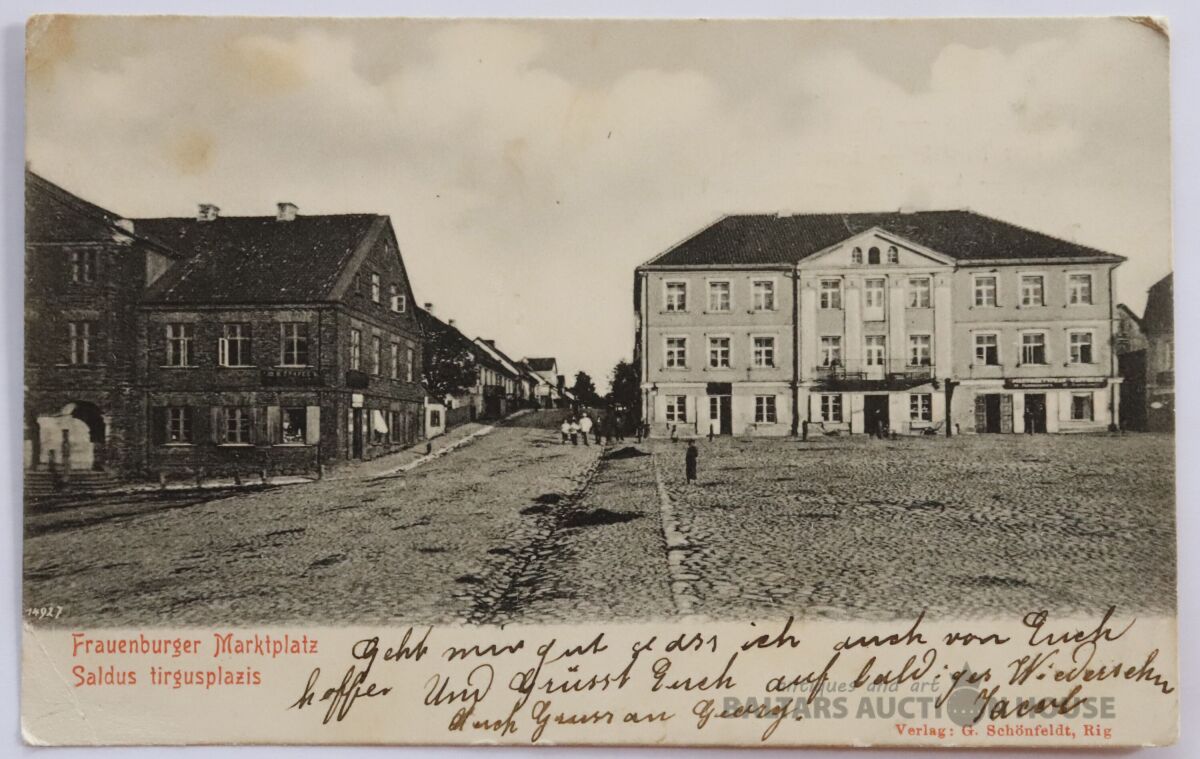 14927
Frauenburger Marktplatz
Saldus tirgusplazis
Geht mir gut dass ich auch von Euch
hoffe Und Grüsst Euch auf baldiges Wiedersehn
Auch Gruss an Georg. Jacob
antiques and art
BAZAARS AUCTION HOUSE
Verlag: G. Schönfeldt, Rig